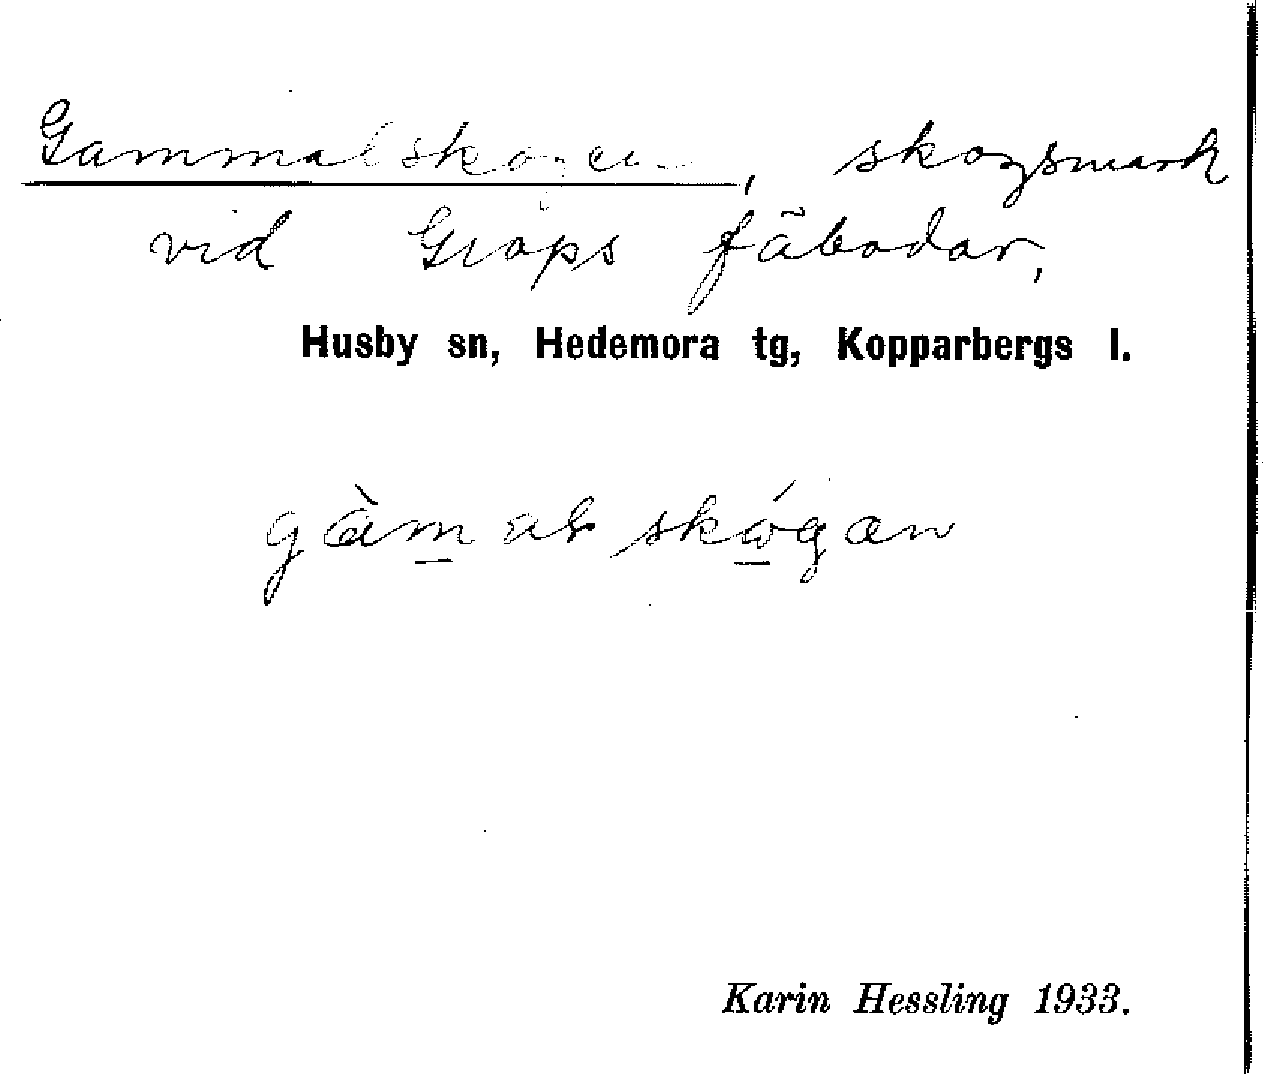 Gammalskogen, skogsmark
vid Grops fäbodar,
Husby sn, Hedemora tg, Kopparbergs l.
Karin Hessling 1933.